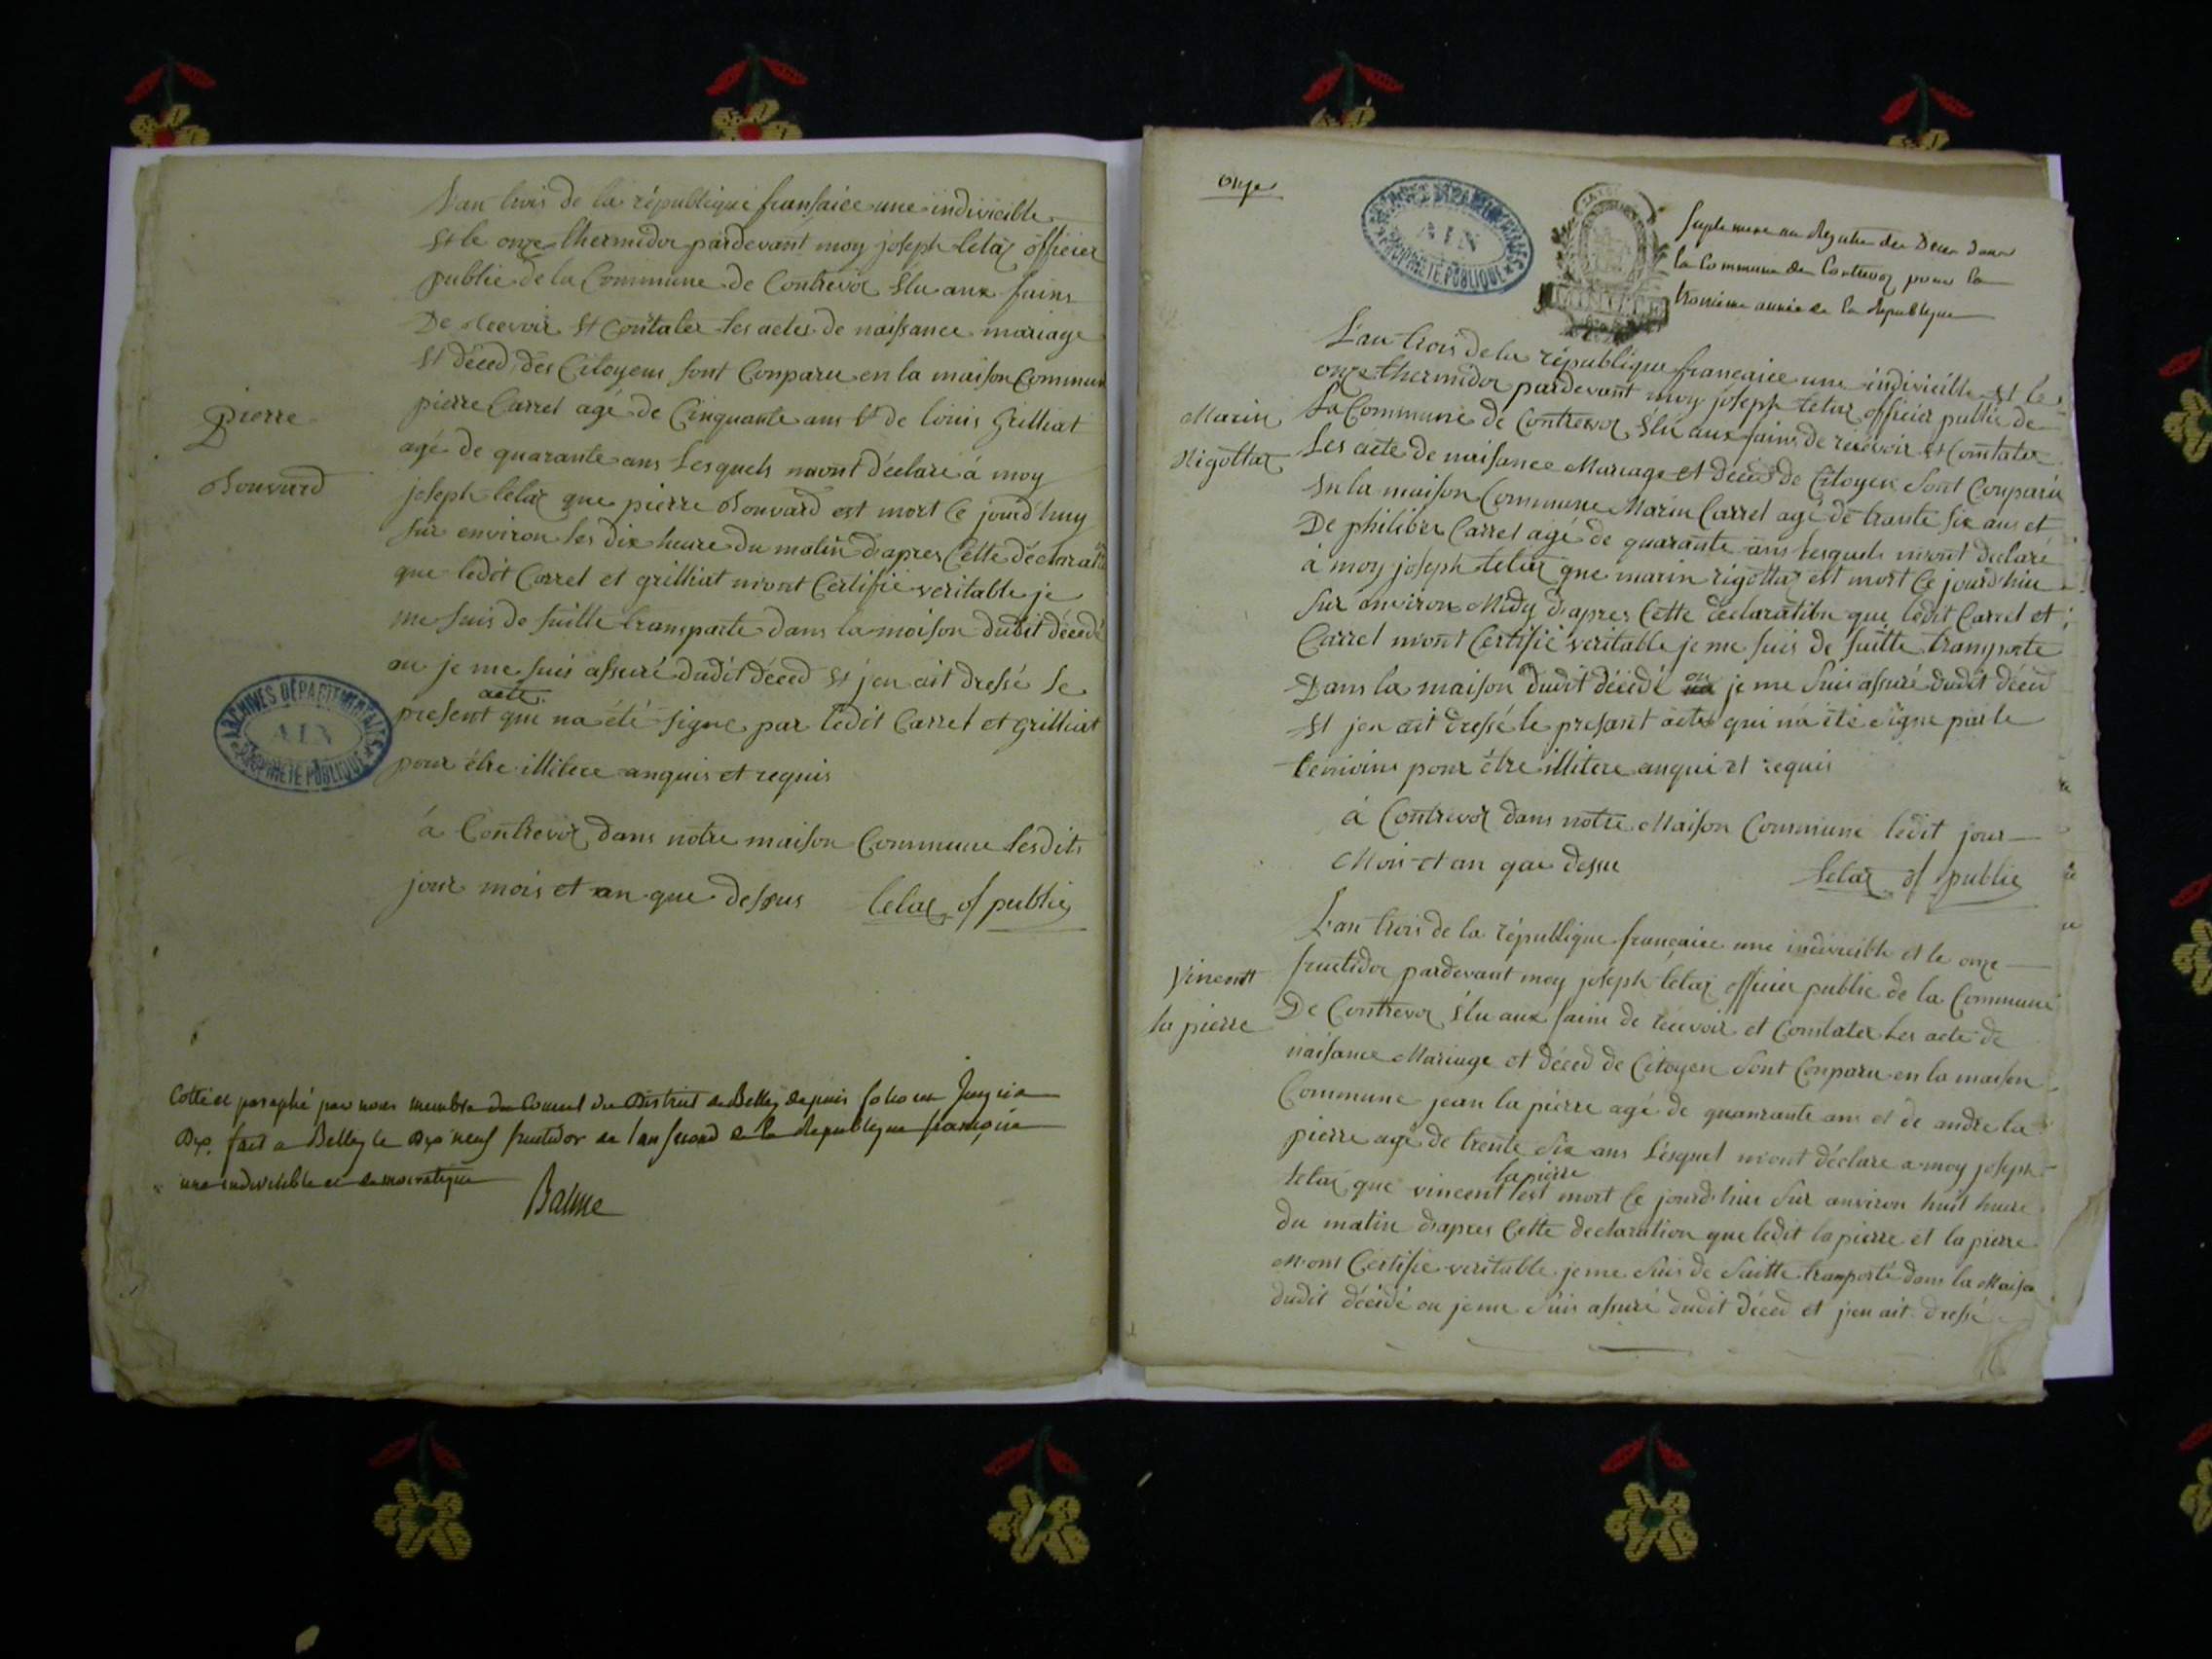 L'an trois de la république fransaice une indivicible
et le onze thermidor pardevant moy joseph telaz officier
public de la Commune de Contrevoz élu aux fains
De recevoir et Contater les actes de naissance mariage
et déced des Citoyens sont Conparu en la maison Commun
pierre Carrel agé de Cinquante ans et de louis Grilliat
Pierre
agé de quarante ans Lesquels mont déclaré à moy
Bouvard
joseph telaz que pierre Bouvard est mort ce jourdhuy
sur environ les dix heure du matin dapres Cette déclaration
que ledit Carrel et grilliat mont Certifié veritable je
me suis de suitte transparte dans la moison dudit décedé
ou je me suis assuré dudit déced et j'en ait dressé le
acte
present qui na été signe par ledit Carret et Grilliat
pour être illitere anquis et requis
à Contrevoz dans notre maison Commune lesdits
jour mois et an que dessus telaz of public
ARCHIVES DÉPARTEMENTALES
AIN
PROPRIÉTÉ PUBLIQUE
Cotté et paraphé par nous membre du Conseil du District de Belley depuis jusqua
Dix. fait a Belley le Dix neuf fructidor de l'an second de la Republique françoise
une indivisible et democratique
Balme
onze
ARCHIVES DÉPARTEMENTALES
AIN
PROPRIÉTÉ PUBLIQUE
MINUTE
suplement au Registre des Deces dans
la Commune de Contrevoz pour la
troisieme année de la Republique
L'an trois de la république françaice une indivicible et le
onze thermidor pardevant moy joseph telaz officier public de
Marin
La Commune de Contrevoz élu aux fains de récévoir et Contater
Rigottaz
Les acte de naisance Mariage et déced de Citoyen sont Conparu
En la maison Commune Marin Carrel agé de trante six ans et
De philiber Carrel agé de quarante ans Lesquels mont declaré
à moy joseph telaz que marin rigottaz est mort ce jourdhui
sur anviron Midy d'apres Cette déclaration que ledit Carrel et
Carrel mont Certifié veritable je me suis de suitte transporte
Dans la maison dudit décédé ou je me suis assuré dudit déced
et jen ait dressé le presant acte qui na été signe par le
temoins pour être illitere anqui et requis
à Contrevoz dans notre Maison Commune ledit jour
Mois et an que dessu
telaz of public
L'an trois de la république françaice une indivicible et le onze
Vincent
fructidor pardevant moy joseph telaz officier public de la Commune
la pierre
De Contrevoz élu aux fains de recevoir et Constater Les acte de
naisance Mariage et déced de Citoyen sont Conparu en la maison
Commune jean la pierre agé de quanrante ans et de andre la
pierre agé de trente six ans Lesquel mont déclare a moy joseph
lapierre
telaz que vincent est mort ce jourdhui sur anviron huit heure
du matin d'apres Cette declaration que ledit lapierre et la pierre
Mont Certifie veritable je me suis de suitte tramporté dans la Maison
dudit décédé ou je me suis assuré dudit déced et j'en ait dressé